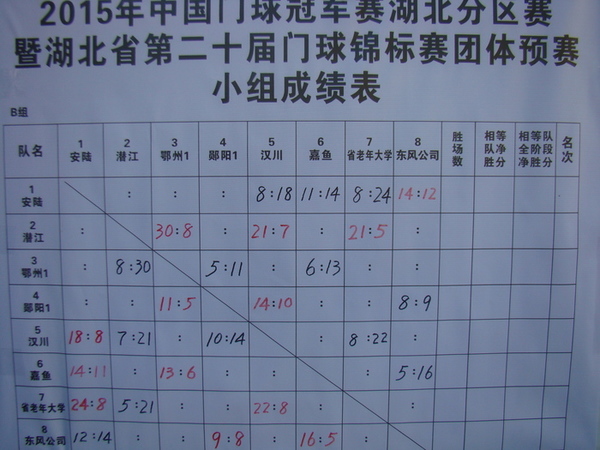 2015年中国门球冠军赛湖北分区赛
暨湖北省第二十届门球锦标赛团体预赛
小组成绩表
B组
队名 1 安陆 2 潜江 3 鄂州1 4 郧阳1 5 汉川 6 嘉鱼 7 省老年大学 8 东风公司 胜场数 相等队净胜分 相等队全阶段净胜分 名次
1 安陆 : : : 8:18 11:14 8:24 14:12
2 潜江 : 30:8 : 21:7 : 21:5 :
3 鄂州1 : 8:30 5:11 : 6:13 : :
4 郧阳1 : : 11:5 14:10 : : 8:9
5 汉川 18:8 7:21 : 10:14 : 8:22 :
6 嘉鱼 14:11 : 13:6 : : : 5:16
7 省老年大学 24:8 5:21 : : 22:8 : :
8 东风公司 12:14 : : 9:8 : 16:5 :